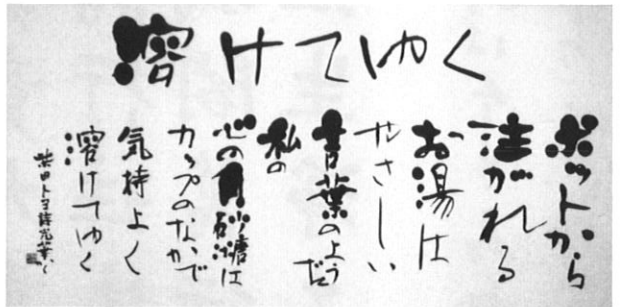 溶けてゆく
ポットから
注がれる
お湯は
やさしい
言葉のようだ
私の
心の角砂糖は
カップのなかで
気持よく
溶けてゆく
柴田トヨ詩